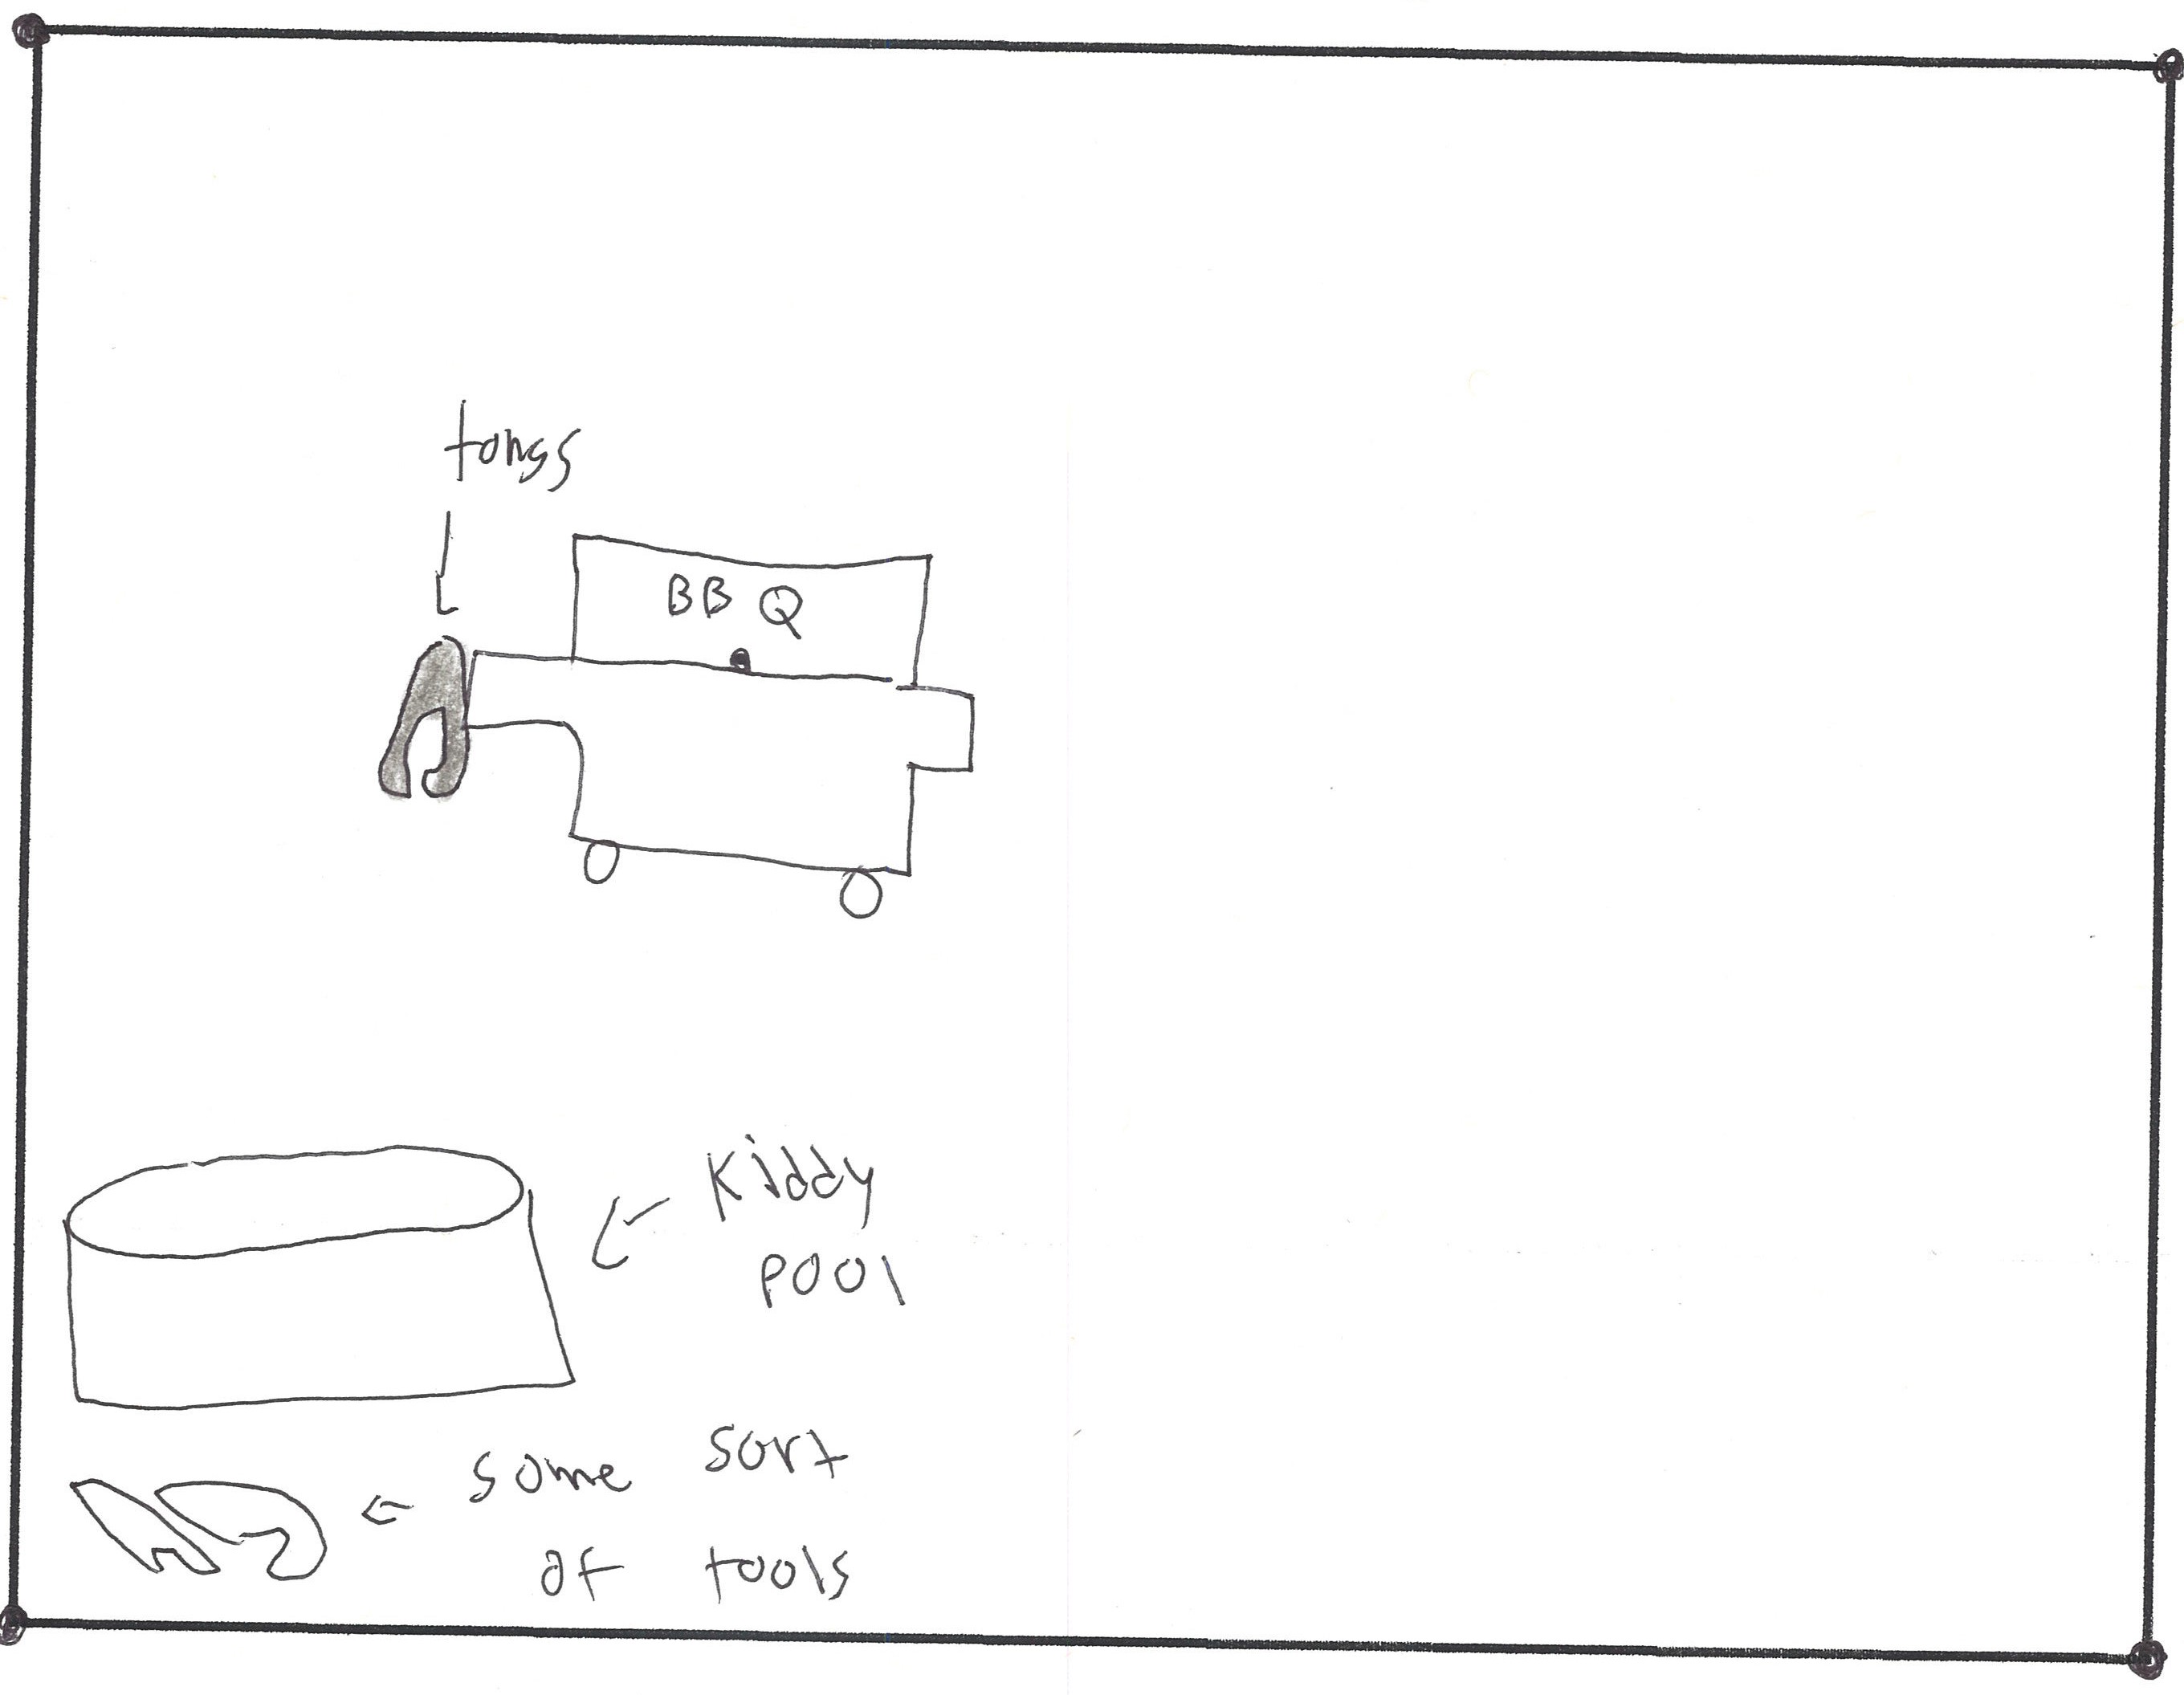 tongs
BBQ
Kiddy
pool
some sort
of tools